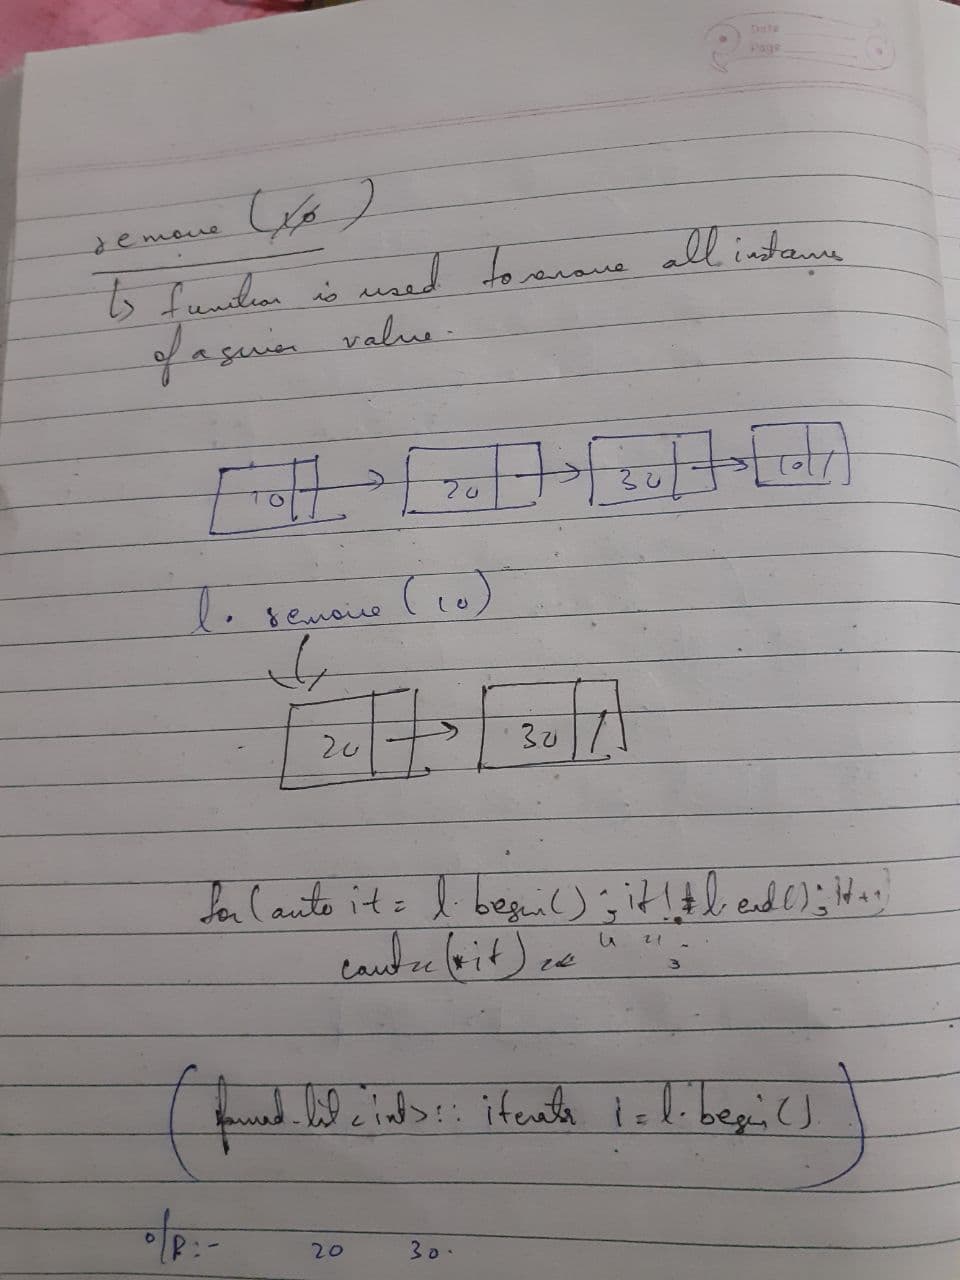 Date
Page
remove (10)
↳ function is used to remove all instances
of a given value.
10 → 20 → 30 → 10 /
l. remove (10)
20 → 30 /
for (auto it = l. begin() ; it != l. end() ; it++)
cout << (*it) << " " ;
(forward_list <int> :: iterator i = l. begin())
o/p :- 20 30.